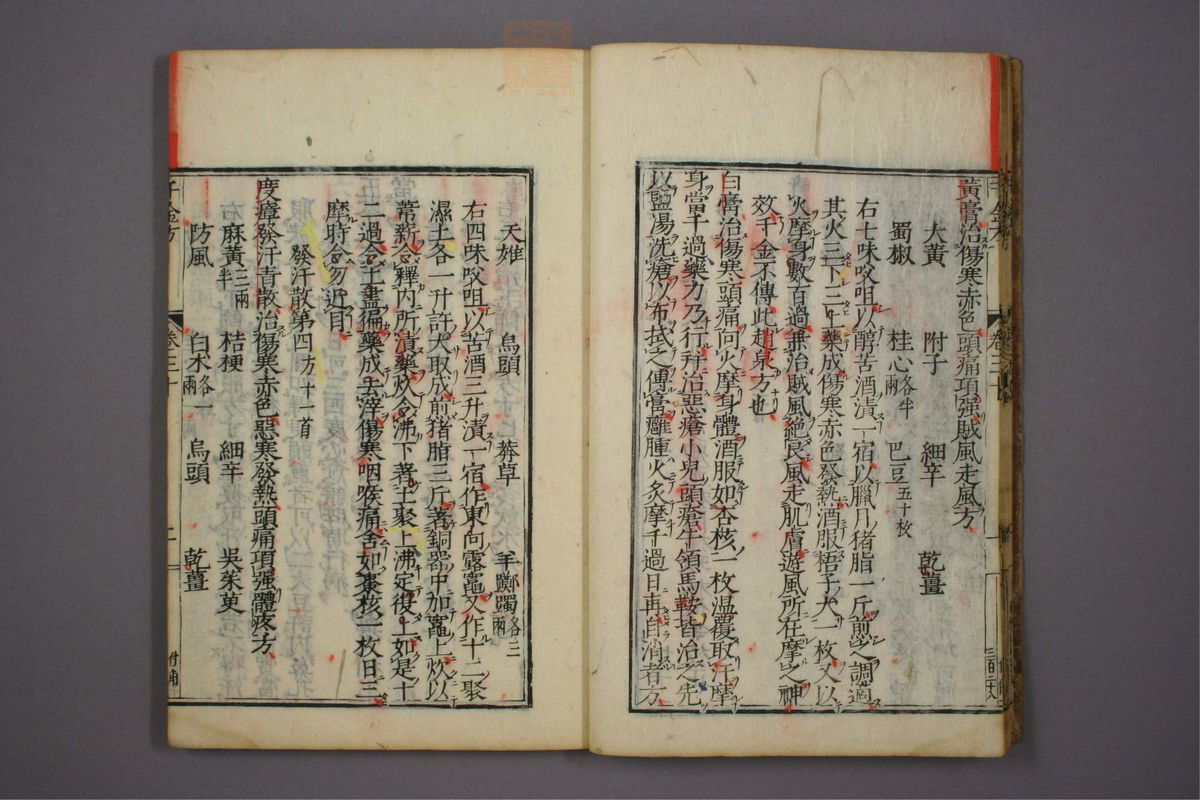 黃膏治傷寒赤色頭痛項强賊風走風方
大黃 附子 細辛 乾薑
蜀椒 桂心各半兩 巴豆五十枚
右七味㕮咀以醇苦酒漬一宿以臘月猪脂一斤煎之調適
其火三下三上藥成傷寒赤色發熱酒服梧子大一枚又以
火摩身數百過兼治賊風絕良風走肌膚遊風所在摩之神
效千金不傳此趙泉方也
白膏治傷寒頭痛向火摩身體酒服如杏核一枚温覆取汗摩
身當千過藥力乃行并治惡瘡小兒頭瘡牛領馬鞍皆治之先
以鹽湯洗瘡以布拭之傅膏癰腫火炙摩千過日再自消者方
天雄 烏頭 莽草 羊躑躅各三兩
右四味㕮咀以苦酒三升漬一宿作東向露竈又作十二聚
濕土各一升許大取成煎猪脂三斤著銅器中加竈上炊以
葦薪令釋內所漬藥炊令沸下著土聚上沸定復上如是十
二過令土盡徧藥成去滓傷寒咽喉痛含如棗核一枚日三
摩時令勿近目
發汗散第四方十一首
度瘴發汗青散治傷寒赤色惡寒發熱頭痛項强體疼方
麻黃三兩半 桔梗 細辛 吳茱萸
防風 白朮各一兩 烏頭 乾薑
千金方 卷三十 二